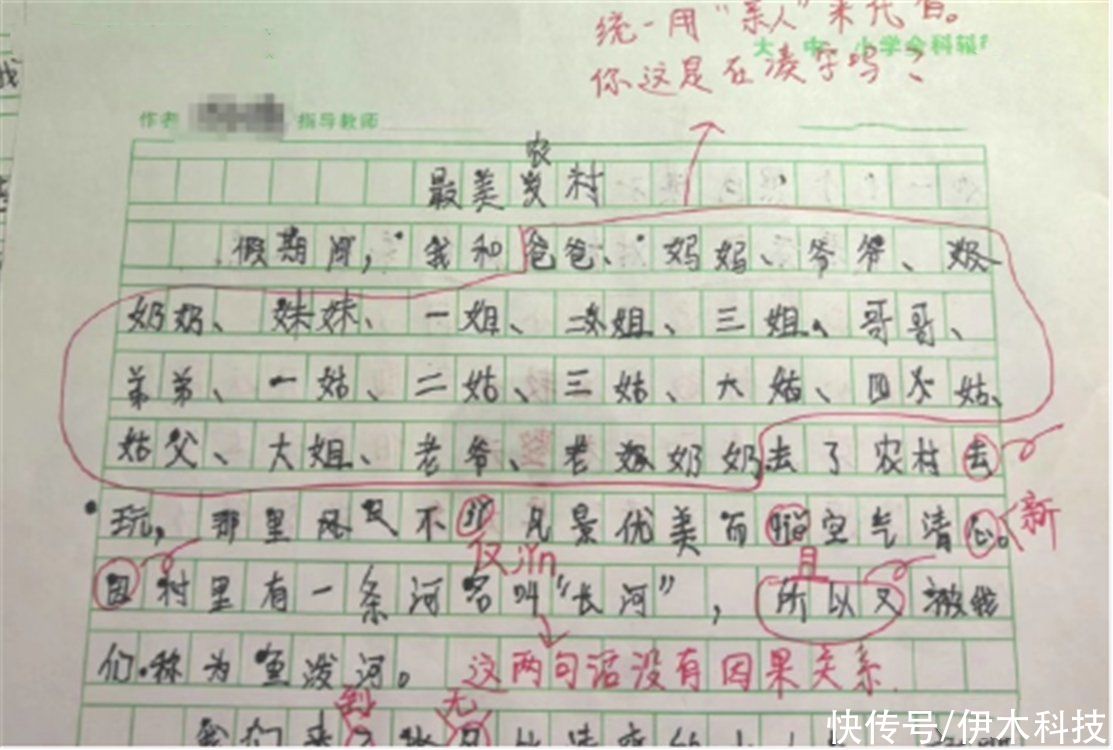 统一用“亲人”来代替。
大中小学全科辅
你这是在凑字吗？
作者 指导教师
农
最美农村
假期间，我和爸爸、妈妈、爷爷、奶
奶奶、妹妹、一姐、二姐、三姐、哥哥、
弟弟、一姑、二姑、三姑、大姑、四大姑、
姑父、大姐、老爷、老奶奶去了农村去
玩，那里风 不 风景优美而 空气清 。
新
仅jǐn
且
村里有一条河名叫“长河”，所以又被我
们称为 泼河。 这两句话没有因果关系.
到 无
我们来
快传号/伊木科技